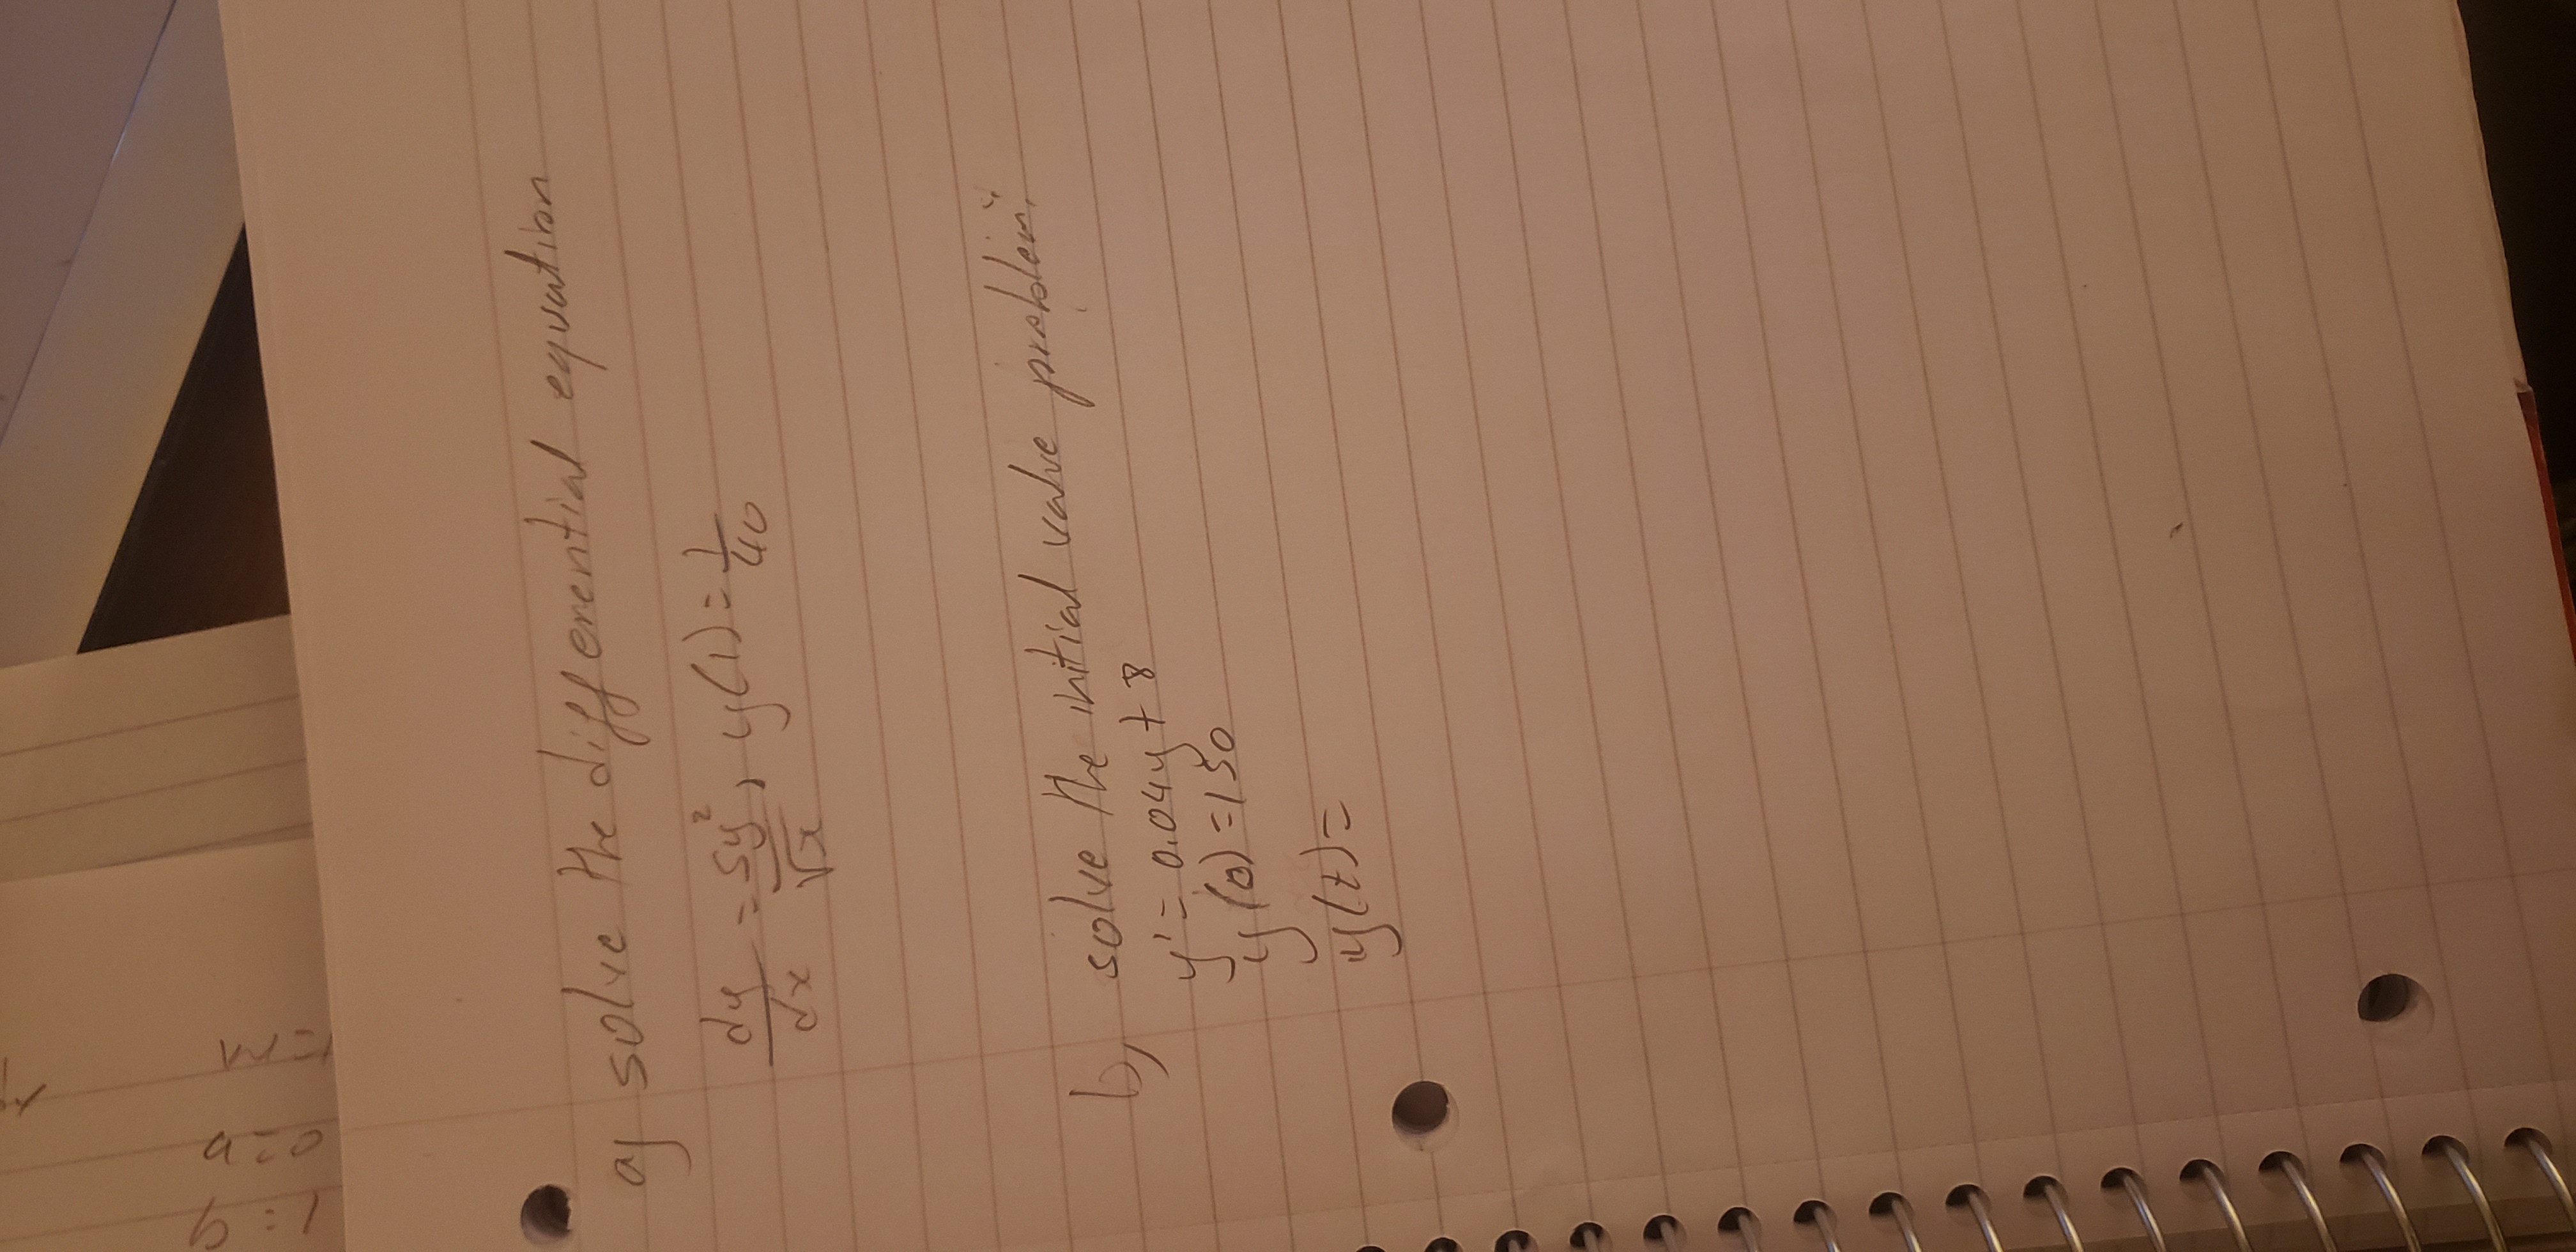 a) solve the differential equation
dy/dx = 5y²/√x, y(1) = 1/40
b) solve the initial value problem:
y' = 0.04y + 8
y(0) = 150
y(t) =
w=1
a=0
b=1